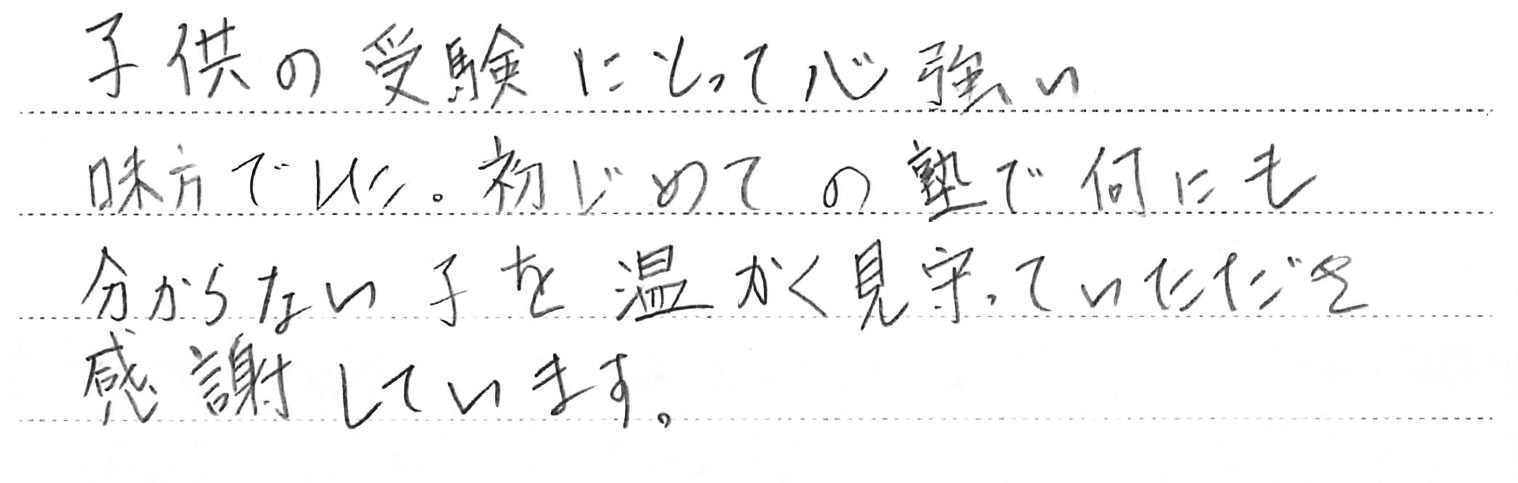 子供の受験にとって心強い
味方でした。初じめての塾で何にも
分からない子を温かく見守っていただき
感謝しています。